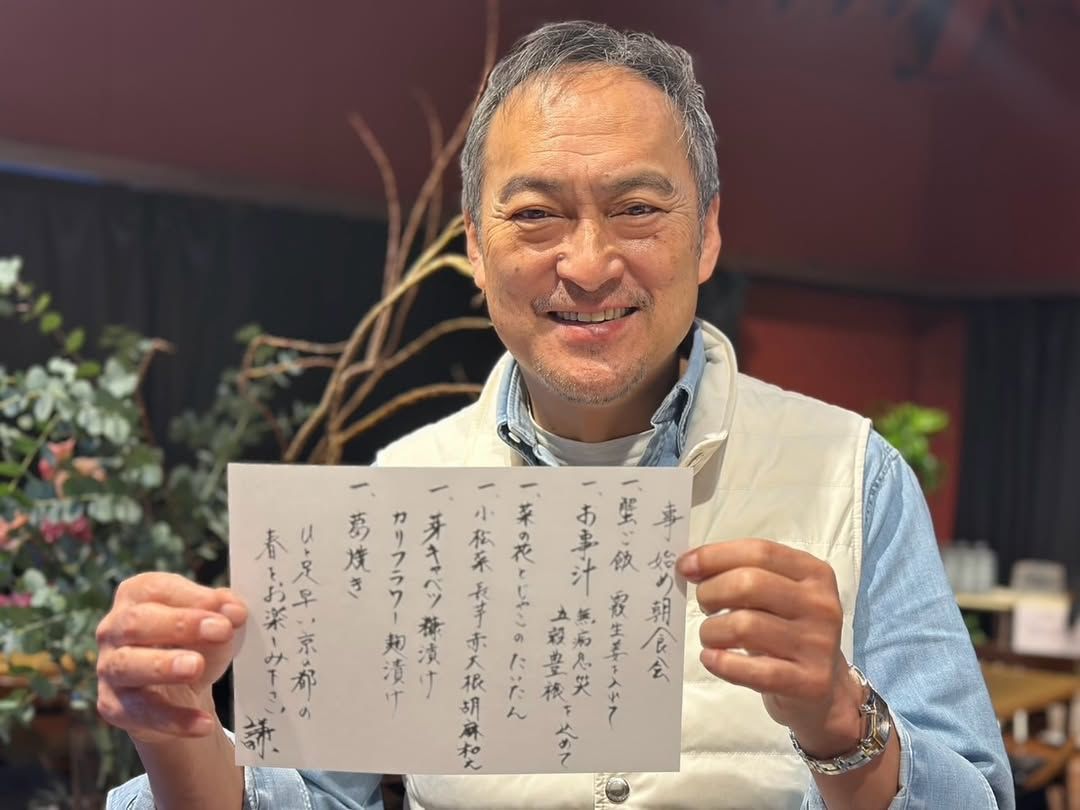 事始め朝食会
一、蟹ご飯 霰生姜を入れて
一、お事汁 無病息災
五穀豊穣を込めて
一、菜の花とじゃこのたいたん
一、小松菜長芋赤大根胡麻和え
一、芽キャベツ糠漬け
カリフラワー麹漬け
一、葛焼き
ひと足早い京の都の
春をお楽しみ下さい
謙